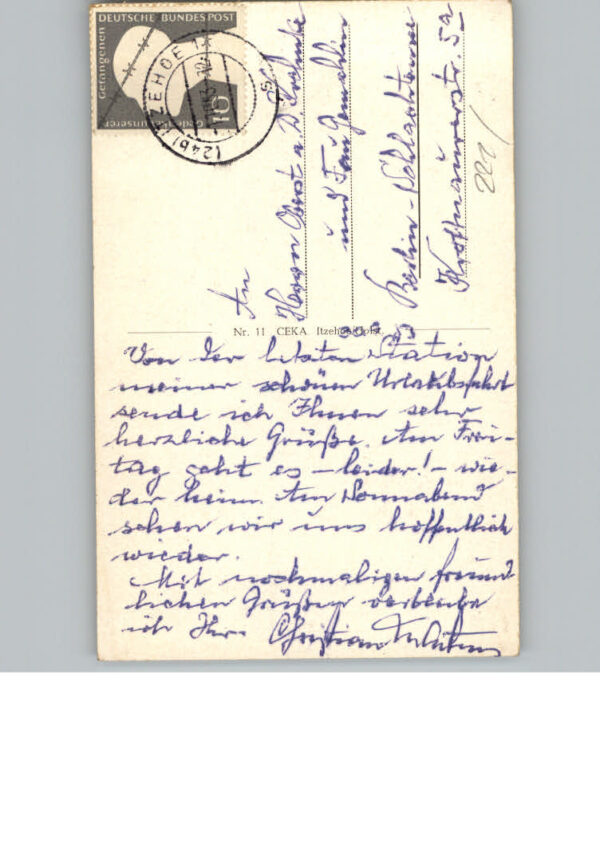 DEUTSCHE BUNDESPOST
Gedenket unserer
Gefangenen
10
(24b) ITZEHOE
An
Herrn Oberst a. D.
und Frau Gemahlin
Berlin-Schlachtensee
Krottnaurerstr. 5a
Nr. 11 CEKA Itzehoe/Holst.
Von der letzten Station
meiner schönen Urlaubsfahrt
sende ich Ihnen sehr
herzliche Grüße. Am Frei-
tag geht es – leider! – wie-
der heim. Am Sonnabend
sehen wir uns hoffentlich
wieder.
Mit nochmaligen freund-
lichen Grüßen verbleibe
ich Ihr Christian